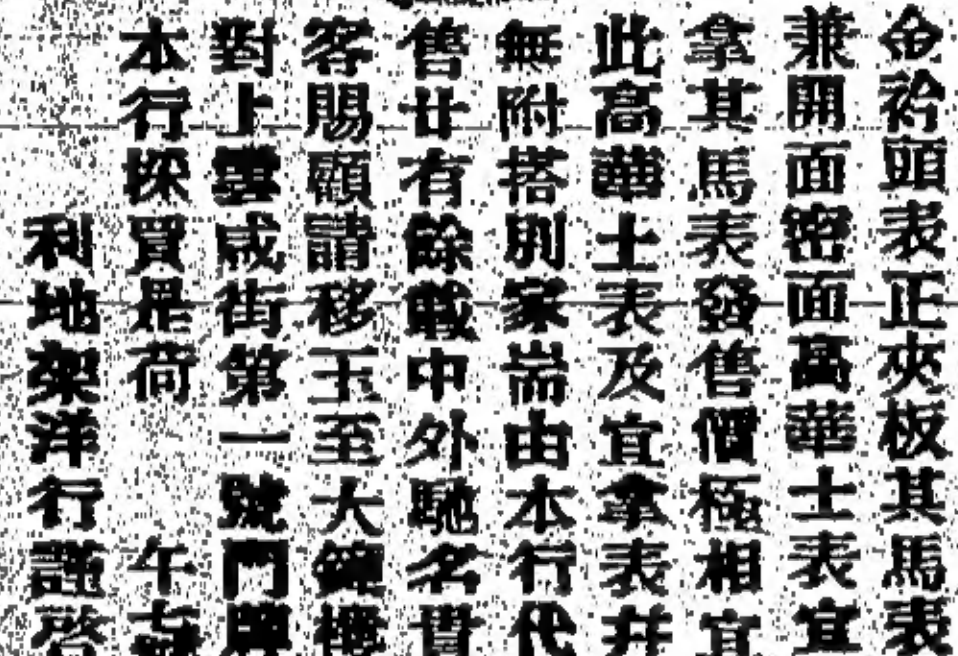 金衿頭表正夾板其馬表
兼開面密面高華士表宜
拿其馬表發售價極相宜
此高華士表及宜拿表并
無附搭別家耑由本行代
售廿有餘載中外馳名貴
客賜顧請移玉至大鐘樓
對上雲咸街第一號門牌
本行採買是荷 午七號
利地架洋行謹啓